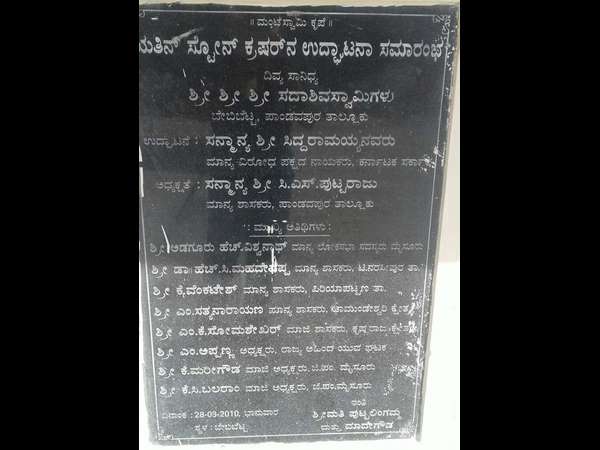 ॥ ಮಂಟೆಸ್ವಾಮಿ ಕೃಪೆ ॥
ಯತಿನ್ ಸ್ಟೋನ್ ಕ್ರಷರ್‌ನ ಉದ್ಘಾಟನಾ ಸಮಾರಂಭ
ದಿವ್ಯ ಸಾನಿಧ್ಯ
ಶ್ರೀ ಶ್ರೀ ಶ್ರೀ ಸದಾಶಿವಸ್ವಾಮಿಗಳು
ಬೇಬಿಬೆಟ್ಟ, ಪಾಂಡವಪುರ ತಾಲ್ಲೂಕು
ಉದ್ಘಾಟನೆ : ಸನ್ಮಾನ್ಯ ಶ್ರೀ ಸಿದ್ದರಾಮಯ್ಯನವರು
ಮಾನ್ಯ ವಿರೋಧ ಪಕ್ಷದ ನಾಯಕರು, ಕರ್ನಾಟಕ ಸರ್ಕಾ
ಅಧ್ಯಕ್ಷತೆ : ಸನ್ಮಾನ್ಯ ಶ್ರೀ ಸಿ.ಎಸ್.ಪುಟ್ಟರಾಜು
ಮಾನ್ಯ ಶಾಸಕರು, ಪಾಂಡವಪುರ ತಾಲ್ಲೂಕು
: ಮುಖ್ಯ ಅತಿಥಿಗಳು :
ಶ್ರೀ ಅಡಗೂರು ಹೆಚ್.ವಿಶ್ವನಾಥ್ ಮಾನ್ಯ ಲೋಕಸಭಾ ಸದಸ್ಯರು ಮೈಸೂರು
ಶ್ರೀ ಡಾ॥ ಹೆಚ್.ಸಿ.ಮಹದೇವಪ್ಪ ಮಾನ್ಯ ಶಾಸಕರು, ಟಿ.ನರಸೀಪುರ ತಾ.
ಶ್ರೀ ಕೆ.ವೆಂಕಟೇಶ್ ಮಾನ್ಯ ಶಾಸಕರು, ಪಿರಿಯಾಪಟ್ಟಣ ತಾ.
ಶ್ರೀ ಎಂ.ಸತ್ಯನಾರಾಯಣ ಮಾನ್ಯ ಶಾಸಕರು, ಚಾಮುಂಡೇಶ್ವರಿ ಕ್ಷೇತ್ರ
ಶ್ರೀ ಎಂ.ಕೆ.ಸೋಮಶೇಖರ್ ಮಾಜಿ ಶಾಸಕರು, ಕೃಷ್ಣರಾಜ ಕ್ಷೇತ್ರ
ಶ್ರೀ ಎಂ.ಅಪ್ಪಣ್ಣ ಅಧ್ಯಕ್ಷರು, ರಾಜ್ಯ ಅಹಿಂದ ಯುವ ಘಟಕ
ಶ್ರೀ ಕೆ.ಮರೀಗೌಡ ಮಾಜಿ ಅಧ್ಯಕ್ಷರು.ಜಿ.ಪಂ. ಮೈಸೂರು
ಶ್ರೀ ಕೆ.ಸಿ.ಬಲರಾಂ ಮಾಜಿ ಅಧ್ಯಕ್ಷರು, ಜಿ.ಪಂ.ಮೈಸೂರು
ದಿನಾಂಕ : 28-03-2010, ಭಾನುವಾರ
ಸ್ಥಳ : ಬೇಬಿಬೆಟ್ಟ.
ಇಂತಿ
ಶ್ರೀಮತಿ ಪುಟ್ಟಲಿಂಗಮ್ಮ
ಮತ್ತು ಮಾದೇಗೌಡ